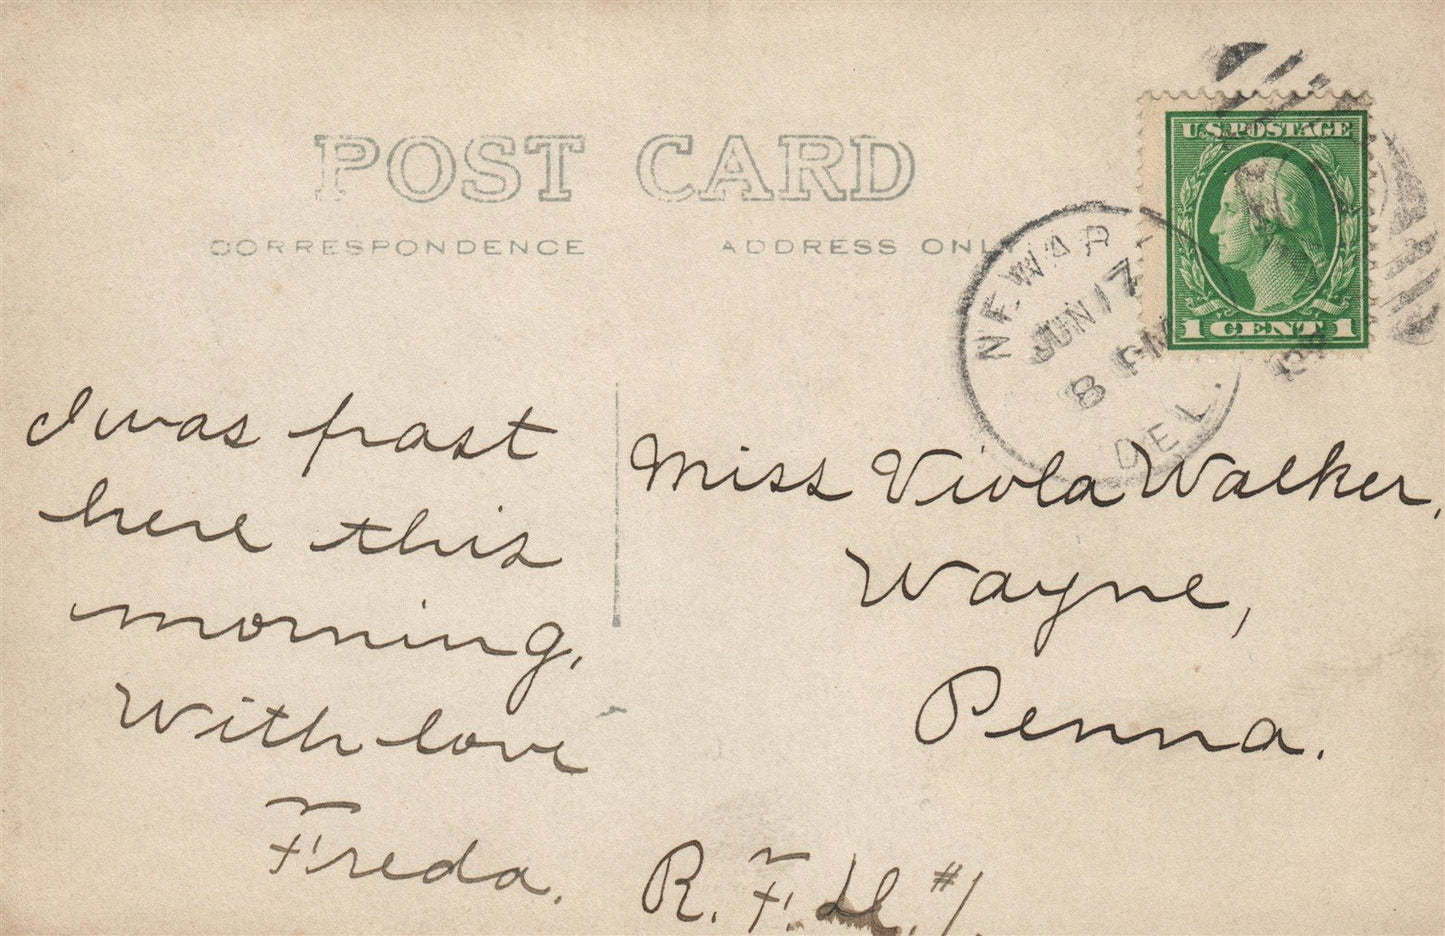 POST CARD
CORRESPONDENCE
ADDRESS ONLY
U.S. POSTAGE
1 CENT 1
NEWARK
JUN 17
8 PM
DEL.
I was past
here this
morning,
With love
Freda.
Miss Viola Walker,
Wayne,
Penna.
R. F. D. #1.